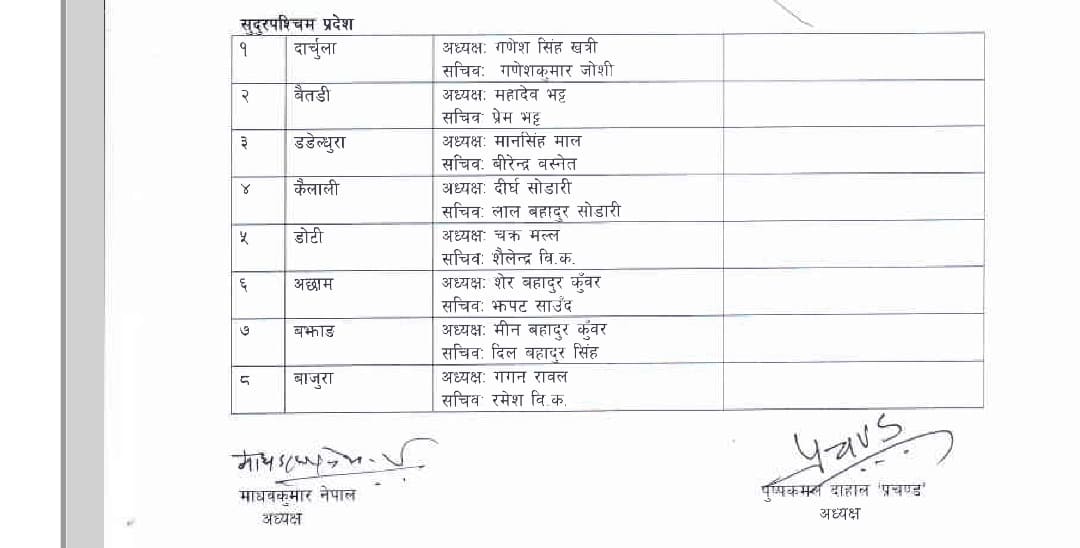 सुदुरपश्चिम प्रदेश
१ दार्चुला अध्यक्ष: गणेश सिंह खत्री
सचिव: गणेशकुमार जोशी
२ बैतडी अध्यक्ष: महादेव भट्ट
सचिव: प्रेम भट्ट
३ डडेल्धुरा अध्यक्ष: मानसिंह माल
सचिव: बीरेन्द्र बस्नेत
४ कैलाली अध्यक्ष: दीर्घ सोडारी
सचिव: लाल बहादुर सोडारी
५ डोटी अध्यक्ष: चक्र मल्ल
सचिव: शैलेन्द्र वि.क.
६ अछाम अध्यक्ष: शेर बहादुर कुँवर
सचिव: झपट साउँद
७ बझाङ अध्यक्ष: मीन बहादुर कुँवर
सचिव: दिल बहादुर सिंह
८ बाजुरा अध्यक्ष: गगन रावल
सचिव: रमेश वि.क.
प्रचण्ड
माधवकुमार नेपाल
अध्यक्ष
पुष्पकमल दाहाल 'प्रचण्ड'
अध्यक्ष